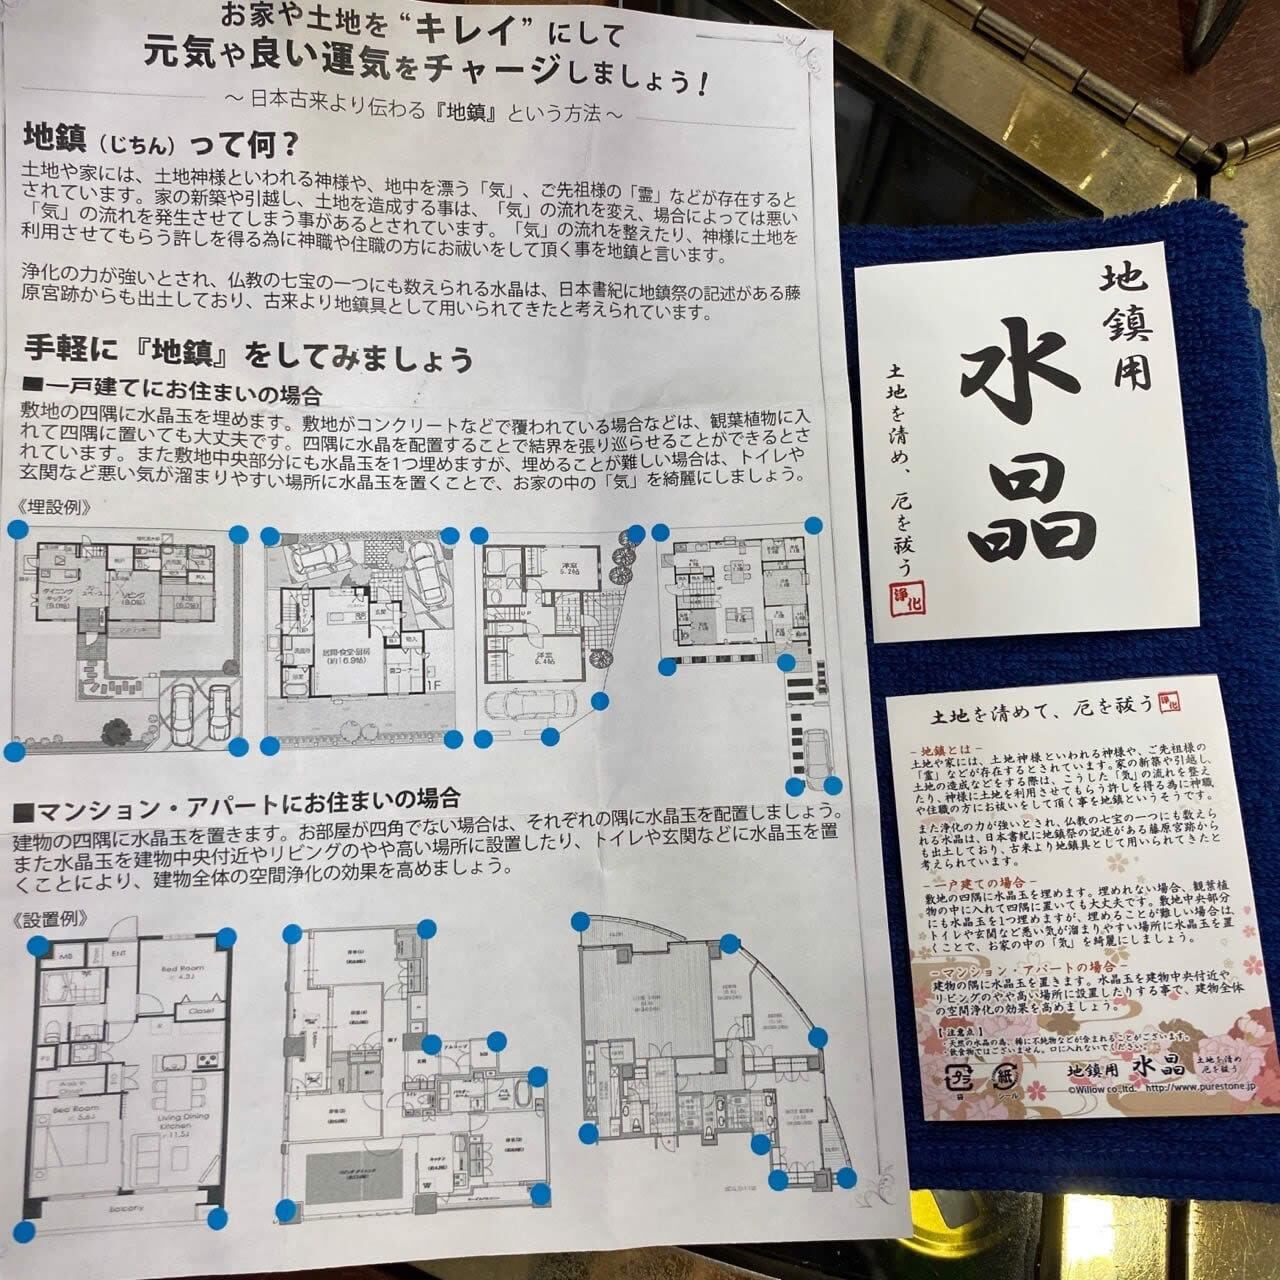 お家や土地を“キレイ”にして
元気や良い運気をチャージしましょう！
～ 日本古来より伝わる『地鎮』という方法 ～
地鎮（じちん）って何？
土地や家には、土地神様といわれる神様や、地中を漂う「気」、ご先祖様の「霊」などが存在すると
されています。家の新築や引越し、土地を造成する事は、「気」の流れを変え、場合によっては悪い
「気」の流れを発生させてしまう事があるとされています。「気」の流れを整えたり、神様に土地を
利用させてもらう許しを得る為に神職や住職の方にお祓いをして頂く事を地鎮と言います。
浄化の力が強いとされ、仏教の七宝の一つにも数えられる水晶は、日本書紀に地鎮祭の記述がある藤
原宮跡からも出土しており、古来より地鎮具として用いられてきたと考えられています。
手軽に『地鎮』をしてみましょう
■一戸建てにお住まいの場合
敷地の四隅に水晶玉を埋めます。敷地がコンクリートなどで覆われている場合などは、観葉植物に入
れて四隅に置いても大丈夫です。四隅に水晶を配置することで結界を張り巡らせることができるとさ
れています。また敷地中央部分にも水晶玉を1つ埋めますが、埋めることが難しい場合は、トイレや
玄関など悪い気が溜まりやすい場所に水晶玉を置くことで、お家の中の「気」を綺麗にしましょう。
《埋設例》
ダイニング
キッチン
リビング
居間・食堂・厨房
洋室
5.2帖
UP
洋室
1F
■マンション・アパートにお住まいの場合
建物の四隅に水晶玉を置きます。お部屋が四角でない場合は、それぞれの隅に水晶玉を配置しましょう。
また水晶玉を建物中央付近やリビングのやや高い場所に設置したり、トイレや玄関などに水晶玉を置
くことにより、建物全体の空間浄化の効果を高めましょう。
《設置例》
MB
ENT
Bed Room
4.3J
Closet
Bed Room
Living Dining
Kitchen
11.5J
Balcony
キッチン
地鎮用
水晶
土地を清め、厄を祓う
浄化
土地を清めて、厄を祓う
浄化
－地鎮とは－
土地や家には、土地神様といわれる神様や、ご先祖様の
「霊」などが存在するとされています。家の新築や引越し、
土地の造成などをする際は、こうした「気」の流れを整え
たり、神様に土地を利用させてもらう許しを得る為に神職
や住職の方にお祓いをして頂く事を地鎮というそうです。
また浄化の力が強いとされ、仏教の七宝の一つにも数えら
れる水晶は、日本書紀に地鎮祭の記述がある藤原宮跡から
も出土しており、古来より地鎮具として用いられてきたと
考えられています。
－一戸建ての場合－
敷地の四隅に水晶玉を埋めます。埋めれない場合、観葉植
物の中に入れて四隅に置いても大丈夫です。敷地中央部分
にも水晶玉を1つ埋めますが、埋めることが難しい場合は、
トイレや玄関など悪い気が溜まりやすい場所に水晶玉を置
くことで、お家の中の「気」を綺麗にしましょう。
－マンション・アパートの場合－
建物の隅に水晶玉を置きます。水晶玉を建物中央付近や
リビングのやや高い場所に設置したりする事で、建物全体
の空間浄化の効果を高めましょう。
【 注意点 】
・天然の水晶の為、稀に不純物などが含まれることがございます。
・飲食物ではございません。口に入れないでください。
プラ
袋
紙
シール
地鎮用 水晶 土地を清め
厄を祓う
©Willow co.,ltd. http://www.purestone.jp